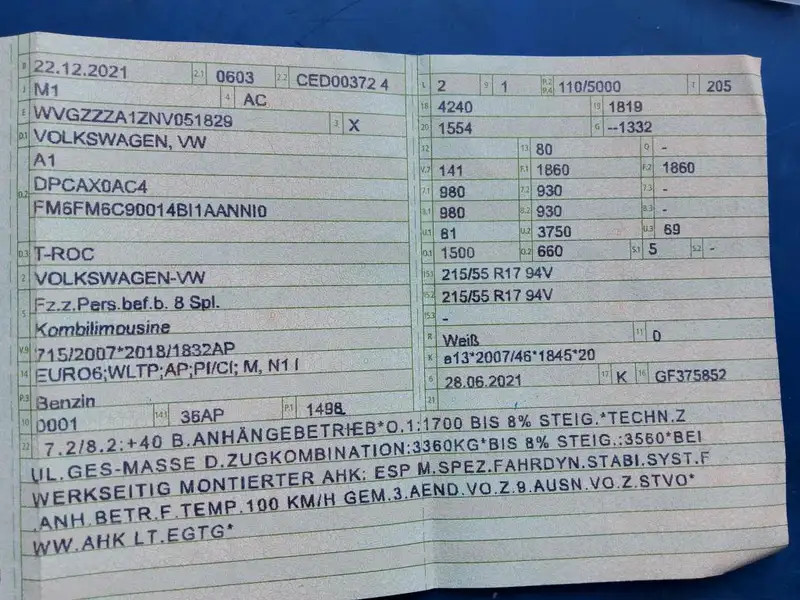 B 22.12.2021 2.1 0603 2.2 CED00372 4
J M1 4 AC
E WVGZZZA1ZNV051829 3 X
D.1 VOLKSWAGEN, VW
A1
D.2 DPCAX0AC4
FM6FM6C90014BI1AANNI0
D.3 T-ROC
2 VOLKSWAGEN-VW
5 Fz.z.Pers.bef.b. 8 Spl.
Kombilimousine
V.9 715/2007*2018/1832AP
14 EURO6;WLTP;AP;PI/CI; M, N1 I
P.3 Benzin
10 0001 14.1 36AP P.1 1498
L 2 9 1 P.2 P.4 110/5000 T 205
18 4240 19 1819
20 1554 G --1332
12 13 80 Q -
V.7 141 F.1 1860 F.2 1860
7.1 980 7.2 930 7.3 -
8.1 980 8.2 930 8.3 -
U.1 81 U.2 3750 U.3 69
O.1 1500 O.2 660 S.1 5 S.2 -
15.1 215/55 R17 94V
15.2 215/55 R17 94V
15.3 -
R Weiß 11 0
K e13*2007/46*1845*20
6 28.06.2021 17 K 16 GF375852
21
22 7.2/8.2:+40 B.ANHÄNGEBETRIEB*O.1:1700 BIS 8% STEIG.*TECHN.Z
UL.GES-MASSE D.ZUGKOMBINATION:3360KG*BIS 8% STEIG.:3560*BEI
WERKSEITIG MONTIERTER AHK: ESP M.SPEZ.FAHRDYN.STABI.SYST.F
.ANH.BETR.F.TEMP.100 KM/H GEM.3.AEND.VO.Z.9.AUSN.VO.Z.STVO*
WW.AHK LT.EGTG*